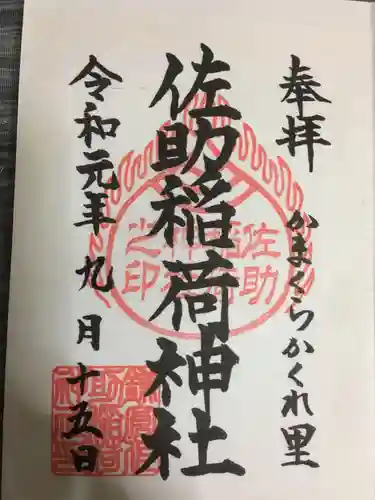 奉拝
かまくらかくれ里
佐助稲荷神社
令和元年九月十五日
佐助
稲荷
神社
之印